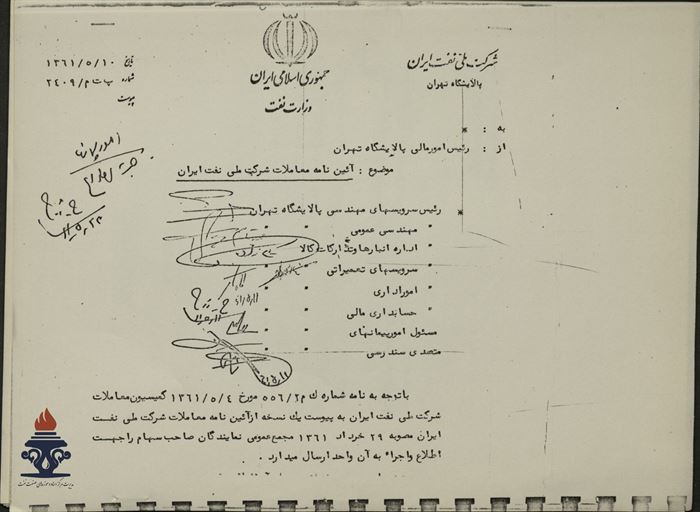 شرکت ملی نفت ایران
پالایشگاه تهران
جمهوری اسلامی ایران
وزارت نفت
تاریخ ۱۳۶۱/۵/۱۰
شماره پ ت م/۲۴۰۹
پیوست
به : *
از : رئیس امور مالی پالایشگاه تهران
موضوع : آئین نامه معاملات شرکت ملی نفت ایران
* رئیس سرویسهای مهندسی پالایشگاه تهران
" مهندسی عمومی " "
" اداره انبارها و تدارکات کالا
" سرویسهای تعمیراتی " "
" امور اداری " "
" حسابداری مالی " "
مسئول امور پیمانهای " "
متصدی سند رسی " "
باتوجه به نامه شماره ك م۵۵۶/۲ مورخ ۱۳۶۱/۵/۴ کمیسیون معاملات
شرکت ملی نفت ایران به پیوست یك نسخه از آئین نامه معاملات شرکت ملی نفت
ایران مصوبه ۲۹ خرداد ۱۳۶۱ مجمع عمومی نمایندگان صاحب سهام را جهت
اطلاع و اجراء به آن واحد ارسال میدارد .